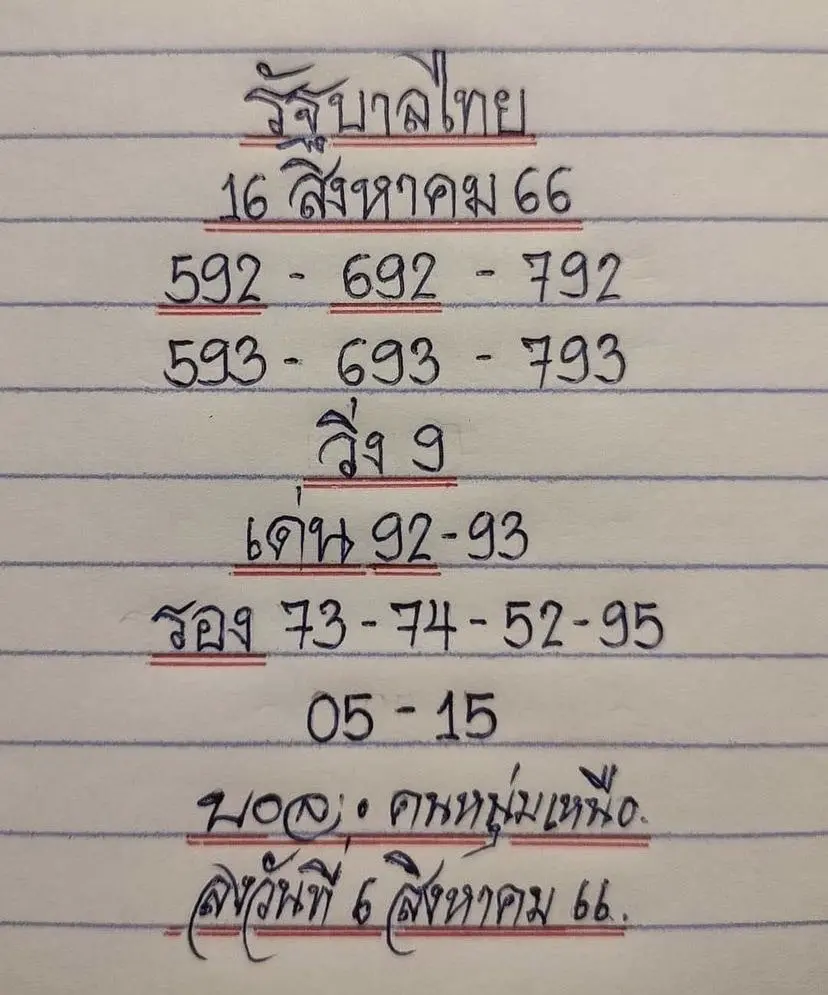 รัฐบาลไทย
16 สิงหาคม 66
592 - 692 - 792
593 - 693 - 793
วิ่ง 9
เด่น 92-93
รอง 73-74-52-95
05-15
บอล : คนหนุ่มเหนือ.
ลงวันที่ 6 สิงหาคม 66.